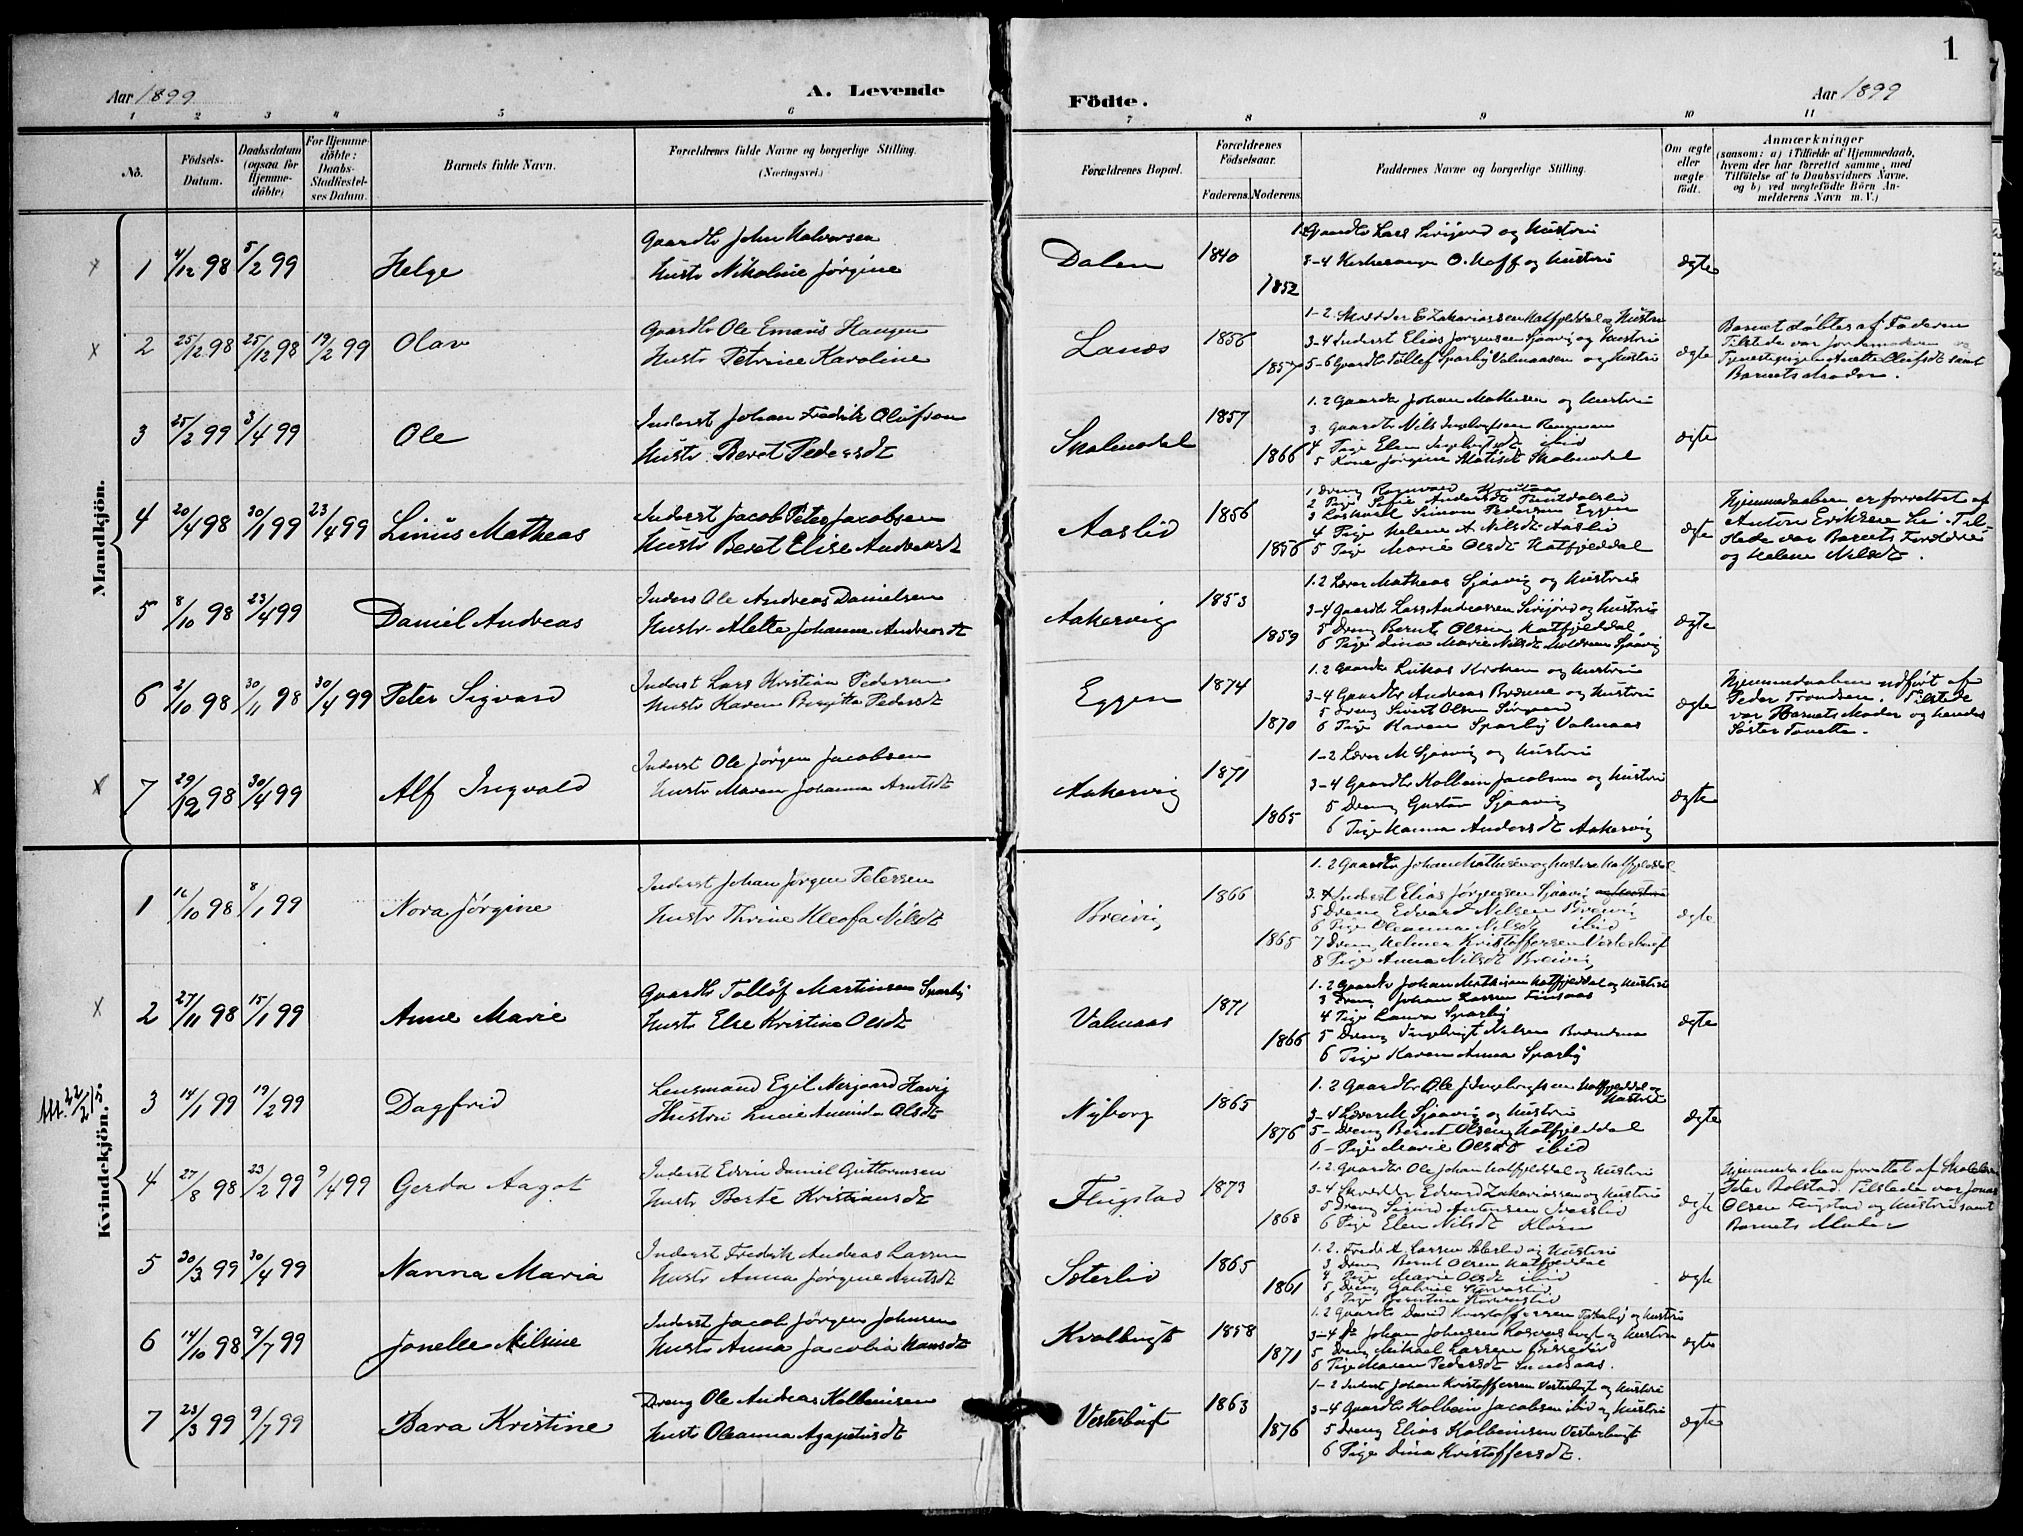 1
Aar 1899
A. Levende
Födte.
Aar 1899
1 2 3 4 5 6 7 8 9 10 11
No.
Födsels-
Datum.
Daabsdatum
(ogsaa for
Hjemme-
döbte)
For Hjemme-
döbte:
Daabs-
Stadfæstel-
ses Datum.
Barnets fulde Navn.
Forældrenes fulde Navne og borgerlige Stilling.
(Næringsvei.)
Forældrenes Bopæl.
Forældrenes
Födselsaar.
Faderens. Moderens.
Faddernes Navne og borgerlige Stilling.
Om ægte
eller
uægte
födt.
Anmærkninger
(saasom: a) i Tilfælde af Hjemmedaab,
hvem der har forrettet samme, med
Tilföielse af to Daabsvidners Navne,
og b) ved uægtefödte Börn An-
melderens Navn m. V.)
Mandkjön.
1 4/12 98 5/2 99 Helge
Gaardbr John Halvorsen
Hustr Nikoline Jørgine
Dalen 1840 1852
og Hustru
3-4 Kirkesanger O. Hoff og Hustru
ægte
2 25/12 98 25/12 98 19/2 99 Olav
Gaardbr Ole Emaus Haugen
Hustr Petrine Karoline
1856 1857
1-2 Skrædder E Zakariassen Hatfjeldal og Hustru
3-4 Inderst Elias Jørgensen Sjaavig og Hustru
5-6 Gaardbr Tollef Sparby Valmaasen og Hustru
ægte
Barnet døbtes af Faderen
Tilstede var Jordemoderen og
Tjenestepigen samt
Barnets Moder.
3 25/2 99 3/4 99 Ole
Inderst Johan Fredrik Olufson
Hustr Beret Pedersdt
Skalmodal 1857 1866
1. 2 Gaardbr Johan Mathisen og Hustru
3. Gaardbr Nils
4 Pige Elen ibid
5 Kone Jørgine Skalmodal
ægte
4 20/4 98 30/1 99 23/4 99 Linus Matheas
Inderst Jacob Peter Jacobsen
Hustr Beret Elise Andersdt
Aaslid 1856 1856
1 Dreng Ragnvald
2 Pige Sofie Andersdt
3 Simon Pedersen Eggen
4 Pige Helene A Nilsdt Aaslid
5 Pige Marie Olsdt Hatfjeldal
ægte
Hjemmedaaben er forrettet af
Anton Eriksen Li. Til-
stede var Barnets Forældre
og Helene Nilsdt.
5 8/10 98 23/4 99 Daniel Andreas
Inders Ole Andreas Danielsen
Hustr. Alette Johanne Andersdt
Aakervig 1853 1859
1. 2 Lærer Matheas Sjaavig og Hustru
3-4 Gaardbr Lars Andreassen og Hustru
5 Dreng Bernt Olsen Hatfjeldal
6 Pige Dina Marie Nilsdt Sjaavig
ægte
6 2/10 98 30/11 98 30/4 99 Peter Sigvard
Inderst Lars Kristian Pedersen
Hustr Karen Birgitta Pedersdt
Eggen 1874 1870
1. 2 Gaardbr Lukas og Hustru
3-4 Gaardbr Andreas og Hustru
5 Dreng Sivert Olsen
6 Pige Karen Sparby Valmaas
ægte
Hjemmedaaben udført af
Peder Trondsen. Tilstede
var Barnets Moder og hendes
Søster
7 29/12 98 30/4 99 Alf Ingvald
Inderst Ole Jørgen Jacobsen
Hustr Maren Johanna Arntsdt
Aakervig 1871 1865
1-2 Lærer M Sjaavig og Hustru
3-4 Gaardbr Kolbein Jacobsen og Hustru
5 Dreng Gustav Sjaavig
6 Pige Hanna Andersdt Aakervig
ægte
Kvindekjön.
1 16/10 98 8/1 99 Nora Jørgine
Inderst Johan Jørgen Petersen
Hustr Thrine Kleofa Nilsdt
Breivig 1866 1865
1. 2 Gaardbr Johan Mathisen og Hustru Hatfjeldal
3. 4 Inderst Elias Jørgensen Sjaavig og Hustru
5 Dreng Edvard Nilsen Breivig
6 Pige Oleanna Nilsdt ibid
7 Dreng Helmer Kristoffersen Vesterbugt
8 Pige Anna Nilsdt Breivig
ægte
2 27/11 98 15/1 99 Anne Marie
Gaardbr Tolløf Martinsen Sparby
Hustr Else Kristine Olsdt
Valmaas 1871 1866
1. 2 Gaardbr Johan Mathisen Hatfjeldal og Hustru
3 Dreng Johan Larsen
4 Pige Laura Sparby
5 Dreng Ingebrigt Nilsen
6 Pige Karen Anna Sparby
ægte
3 14/1 99 19/2 99 Dagfrid
Lensmand Egil Nergaard Havig
Hustru Lucie Amanda Olsdt
Nyborg 1865 1876
1. 2 Gaardbr Ole J Ingebrigtsen Hatfjeldal og
Hustru
3-4 Lærer M Sjaavig og Hustru
5- Dreng Bernt Olsen Hatfjeldal
6- Pige Marie Olsdt ibid
ægte
Att. 22/2/5.
4 27/8 98 23/2 99 9/4 99 Gerda Aagot
Inderst Edvin Daniel Guttormsen
Hustr Berte Kristiansdt
Flugstad 1873 1868
1. 2 Gaardbr Ole Johan Hatfjeldal og Hustru
3-4 Skrædder Edvard Zakariassen og Hustru
5 Dreng Sigurd Antonsen
6 Pige Elen Nilsdt
ægte
Hjemmedaaben forrettet af Skolelærer
Peter Bolstad. Tilstede var Jonas
Olsen Flugstad og Hustru samt
Barnets Moder
5 20/3 99 30/4 99 Nanna Maria
Inderst Fredrik Andreas Larsen
Hustr Anna Jørgine Arntsdt
Sæterlid 1865 1861
1. 2. Fredr A Larsen Sæterlid og Hustru
3 Dreng Bernt Olsen Hatfjeldal
4 Pige Marie Olsdt ibid
5 Dreng Gabriel
6 Pige
ægte
6 14/10 98 9/7 99 Jonelle Nilsine
Inderst Jacob Jørgen Johnsen
Hustr Anna Jacobia Hansdt
Kvalbugt 1858 1871
1. 2 Gaardbr David Kristoffersen og Hustru
3-4 Do Johan Johnsen og Hustru
5 Dreng Mikael Larsen
6 Pige Maren Pedersdt
ægte
7 23/3 99 9/7 99 Bara Kristine
Dreng Ole Andreas Kolbeinsen
Hustr Oleanna Agapetusdt
Vesterbugt 1863 1876
1-2 Inderst Johan Kristoffersen Vesterbugt og Hustru
3-4 Gaardbr Kolbein Jacobsen ibid og Hustru
5 Dreng Elias Kolbeinsen Vesterbugt
6 Pige Dina Kristoffersdt.
ægte